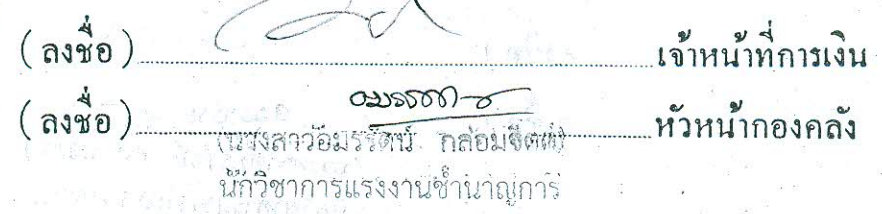 (ลงชื่อ)........................เจ้าหน้าที่การเงิน
(ลงชื่อ)........................หัวหน้ากองคลัง
(นางสาวอมรรัตน์ กล่อมจิตต์)
นักวิชาการแรงงานชำนาญการ